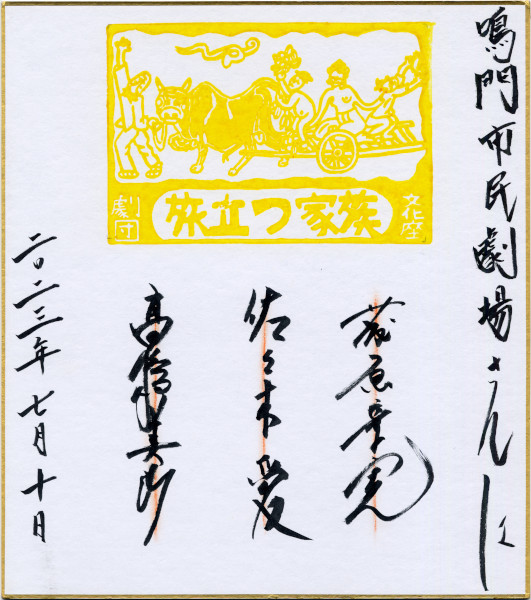 鳴門市民劇場さんに
劇団 旅立つ家族 文化座
藤原章寛
佐々木愛
髙橋美沙
二〇二三年七月十日